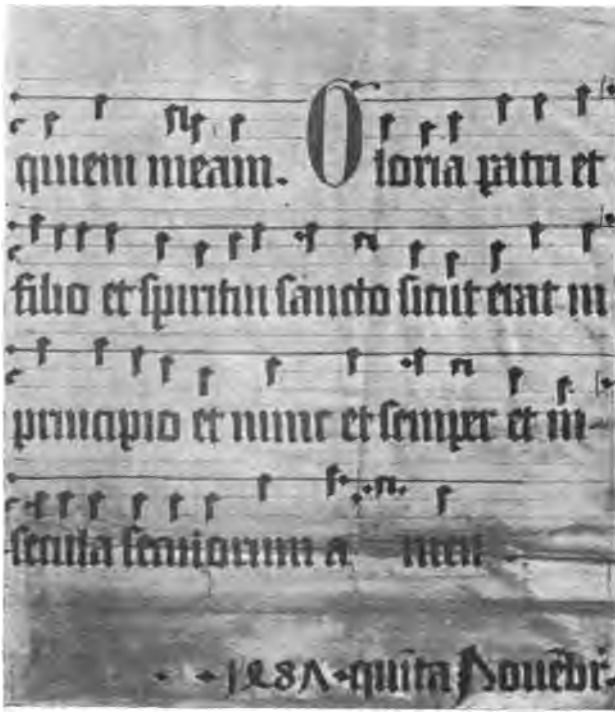 quiem meam. Gloria patri et
filio et ſpiritui ſancto ſicut erat in
principio et nunc et ſemper et in
ſecula ſeculorum a men
1487 · quīta Nouēbr.